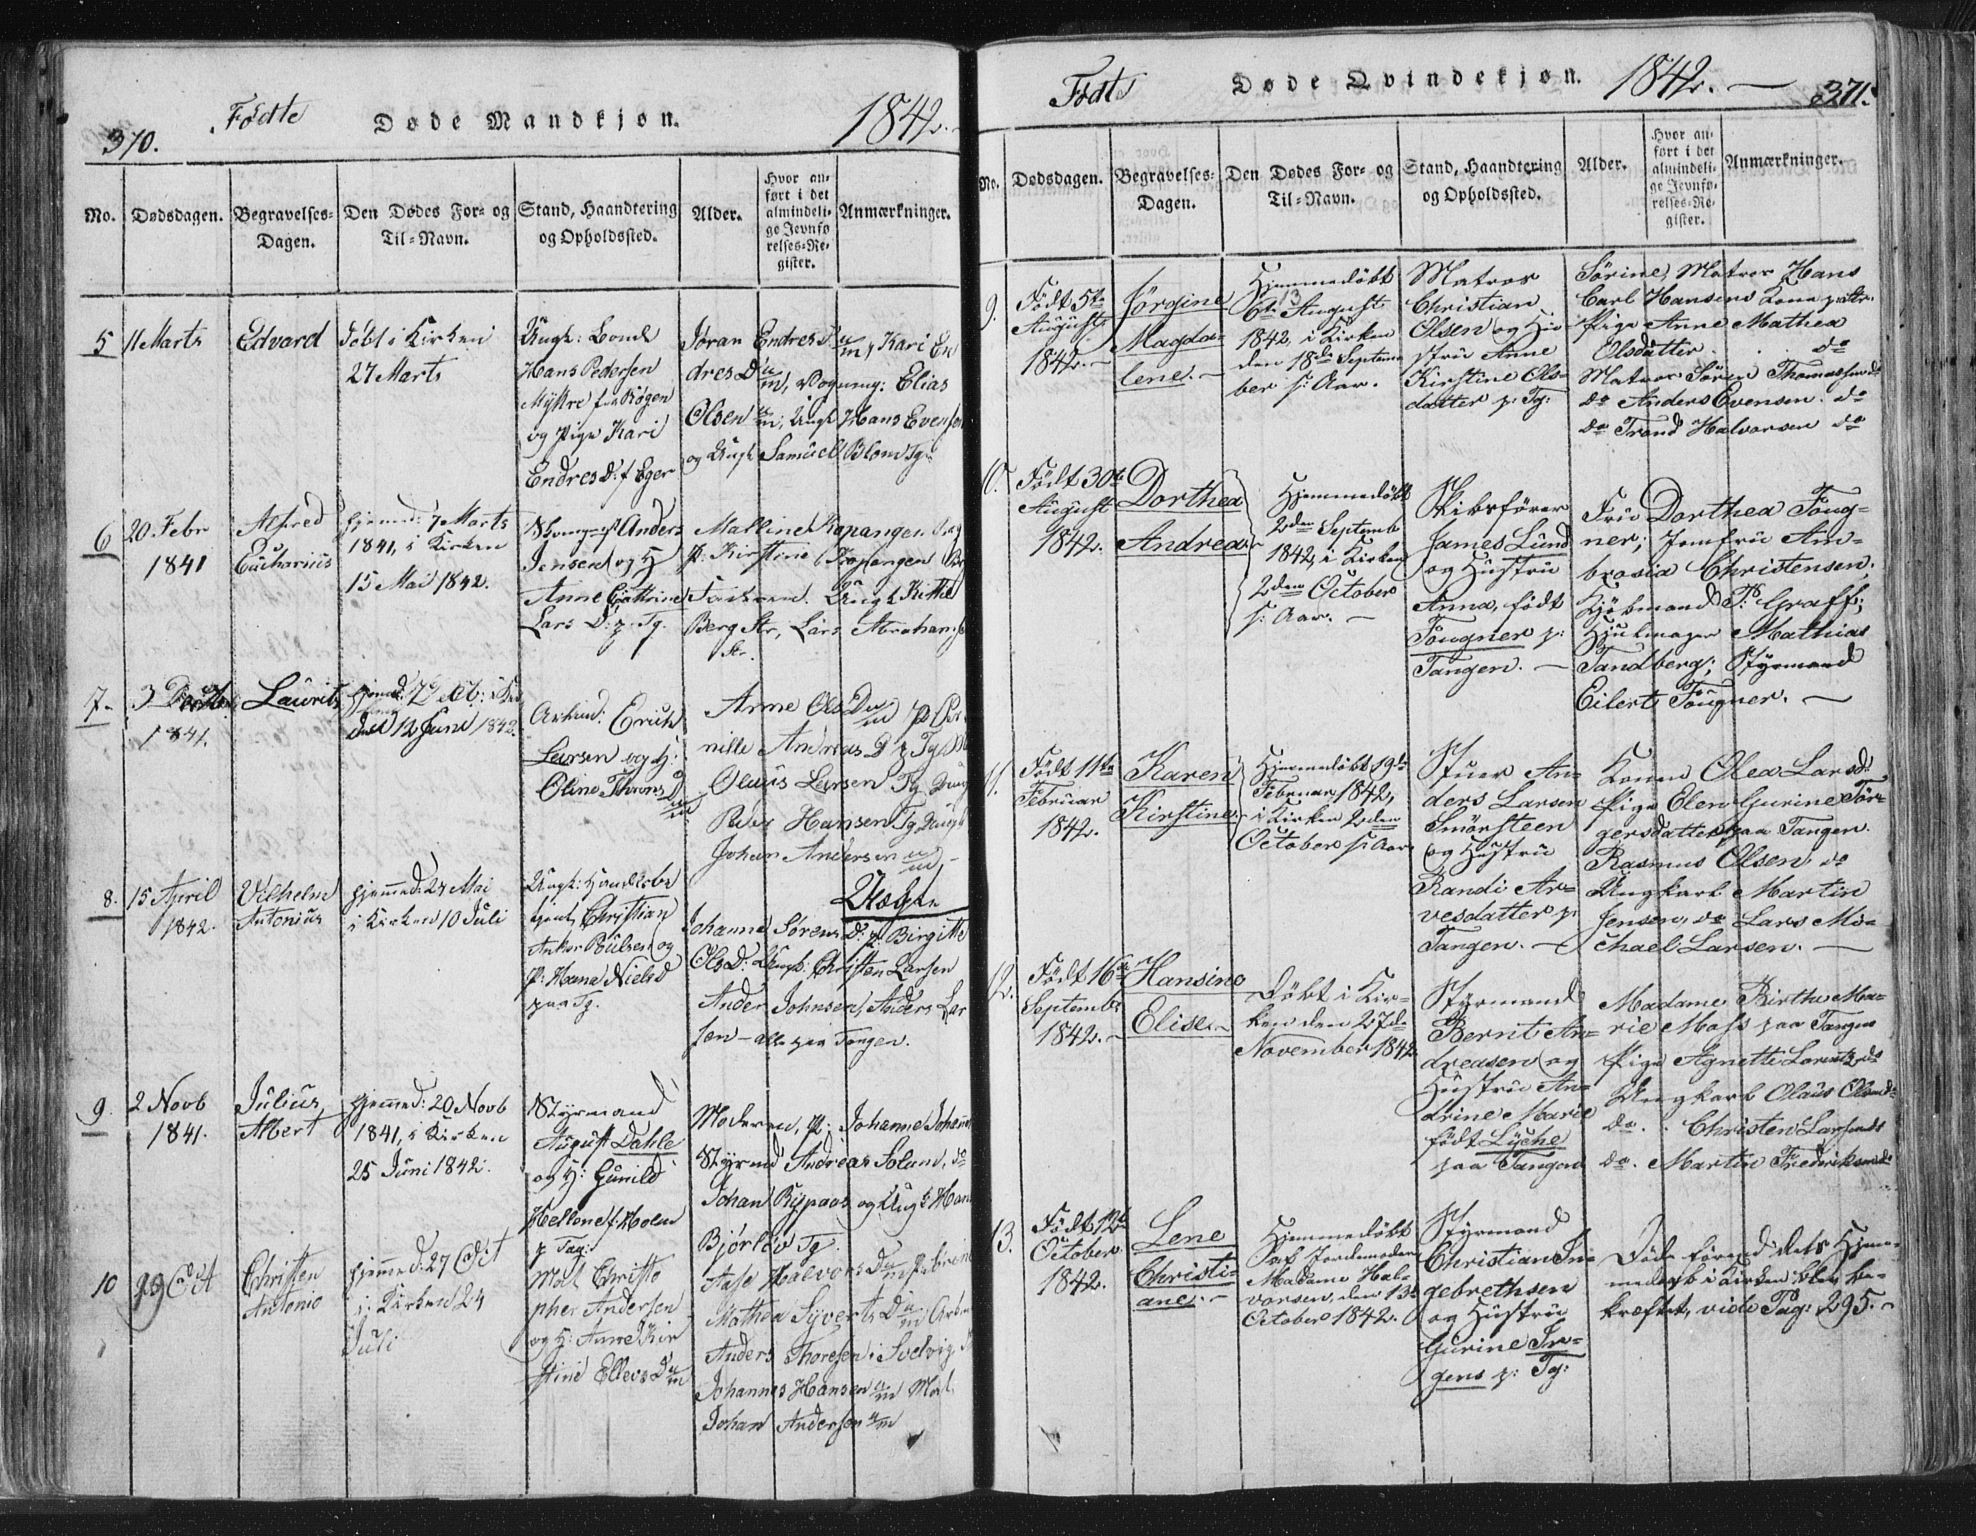 370.
Fødte
Døde Mandkjøn.
1842.
No.
Dødsdagen.
Begravelses-Dagen.
Den Dødes For- og Til-Navn.
Stand, Haandtering og Opholdssted.
Alder.
Hvor anført i det almindelige Jevnførelses-Register.
Anmærkninger.
5
11 Marts
Edvard
Døbt i Kirken
27 Marts
Ungk: Bonde
Hans Pedersen
Mykre fra Røgen
og Pige Kari
Endres D: f Eger
Jøran Endres D.
Kari En
dres D
Elias
Olsen
Ungk Hans Evensen
og Ungk Samuel Blom Tg
6
20 Febr
1841
Alfred
Eucharius
hjemmed: 7 Marts
1841, i Kirken
15 Mai 1842.
Anders
Jensen og H
Anne Cathrine
Lars D: p. Tg.
Malline Kopangen
P: Kirstine Kopangen
Ungk
Berg Str, Lars Abrahams
Str.
7
3
1841.
Laurits
den 12 Juni 1842.
Arbmd: Erich
Larsen og H:
Oline Throns D
Anne Ols D
p Per
nille Andreas D p Tg
Olaus Larsen Tg Ungk
Peder Hansen Tg Ungk
Johan Andersen
8.
15 April
1842.
Vilhelm
Antonius
hjemmed: 27 Mai
i Kirken 10 Juli
Ungk: Handelsbe
tjent Christian
Anker Poulsen og
P: Hana Niels D
paa Tg.
Uægte
Johanne Sørens D: P. Birgitte
Ols D: Ungk: Christen Larsen
Ander Johnsen, Anders Lar
sen - alle paa Tangen.
9.
2 Novb
1841.
Julius
Albert
hjemmed: 20 Novb
1841, i Kirken
25 Juni 1842.
Styrmand
August Dahle
og H: Gunild
Hellene f. Holm
p Tag:
Moderen, P: Johanne Johann
Styrmd Andreas Solum, do
Johan Rypaas og Ungk Hans
Bjørløv Tg.
10
29 Oct
Christen
Antonio
hjemmed: 27 Oct
i Kirken 24
Juli
Mat Christo
pher Andersen
og H: Anne Kir
stine Ellevs D
Aase Halvors D
Mathea Syverts D
Anders Thoresen i Svelvig
Johannes Hansen
Mat.
Johan Andersen
Fødte
Døde Qvindekjøn.
1842. —
371.
No.
Dødsdagen.
Begravelses-Dagen.
Den Dødes For- og Til-Navn.
Stand, Haandtering og Opholdssted.
Alder.
Hvor anført i det almindelige Jevnførelses-Register.
Anmærkninger.
9.
Født 5te
August
1842. —
Jørgine
Magda-
lene. —
Hjemmedøbt
13
August
1842, i Kirken
den 18de Septem
ber s: Aar.
Matros
Christian
Olsen og Hu
stru Anne
Kirstine Ols-
datter p: Tg:
Sørine, Matros Hans
Carl Hansens Kone
Pige Anne Mathea
Olsdatter
do
Matros Søren Thomassen do
do Anders Evensen. do
do Trond Halvorsen do
10.
Født 30te
August
1842.
Dorthea
Andrea. —
Hjemmedøbt
2den Septemb
1842, i Kirken
2den October
s: Aar. —
Skibsfører
James Lund
og Hustru
Anna, født
Fougner p:
Tangen. —
Fru Dorthea Foug-
ner; Jomfru Am-
brosia Christensen,
Kjøbmand P: Graff;
Hjulmager Mathias
Tandberg; Styrmand
Eilert Fougner. —
11.
Født 11te
Februar
1842.
Karen
Kirstine. —
Hjemmedøbt 19de
Februar 1842,
i Kirken 2den
October s: Aar
Stuer An-
ders Larsen
Smørsteen
og Hustru
Randi Ar-
vesdatter p:
Tangen. —
Konen Olea Larsd:
Pige Elen Gurine Tør-
gersdatter paa Tangen.
Rasmus Olsen do
Ungkarl Martin
Jensen, do Lars Mi-
chael Larsen. —
12.
Født 16de
Septemb:
1842. —
Hansine
Elise. —
Døbt i Kir-
ken den 27de
November 1842
Styrmand
Bernt An-
dreasen og
Hustru An-
drine Marie
født Lyche
paa Tangen
Madame Birthe Ma-
rie Moss paa Tangen
Pige Agnette Lorentz do
Ungkarl Olaus Olsen do
do. Christen Larsen do
do. Martin Fredriksen do
13.
Født 12te
October
1842.
Lene
Christi-
ane. —
Hjemmedøbt
af Jordemoder
Madame Hal-
vorsen, den 13de
October 1842.
Styrmand
Christian In-
gebrethsen
og Hustru
Gurine In-
gens p: Tg:
Døde førend dets Hjem-
medaab i Kirken blev be-
kræftet, vide Pag: 295. —